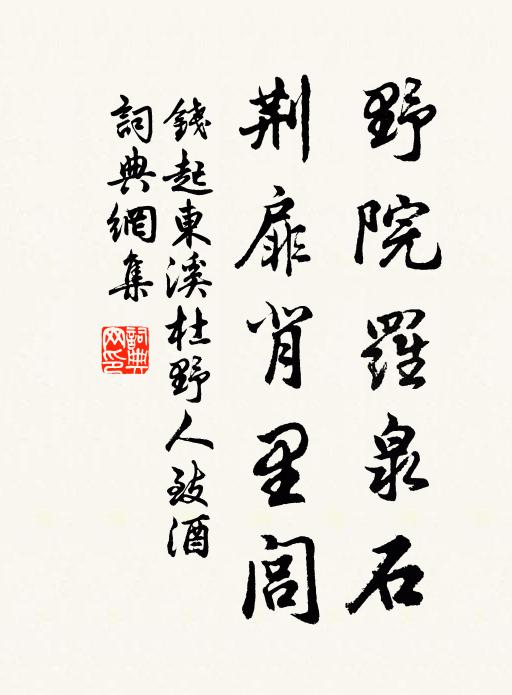 野院羅泉石
荆扉背里閭
錢起東溪杜野人致酒
詞典網集
詞典網印